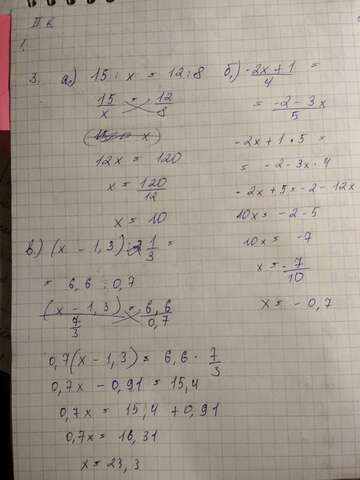 II в
1.
3. а.) 15 : x = 12 : 8
15/x = 12/8
12x = 120
x = 120/12
x = 10
б.) -2x + 1/4 =
= -2 - 3x/5
-2x + 1 · 5 =
= -2 - 3x · 4
-2x + 5 = -2 - 12x
10x = -2 - 5
10x = -7
x = -7/10
x = -0,7
в.) (x - 1,3) : 2 1/3 =
= 6,6 : 0,7
(x - 1,3)/7/3 = 6,6/0,7
0,7(x - 1,3) = 6,6 · 7/3
0,7x - 0,91 = 15,4
0,7x = 15,4 + 0,91
0,7x = 16,31
x = 23,3